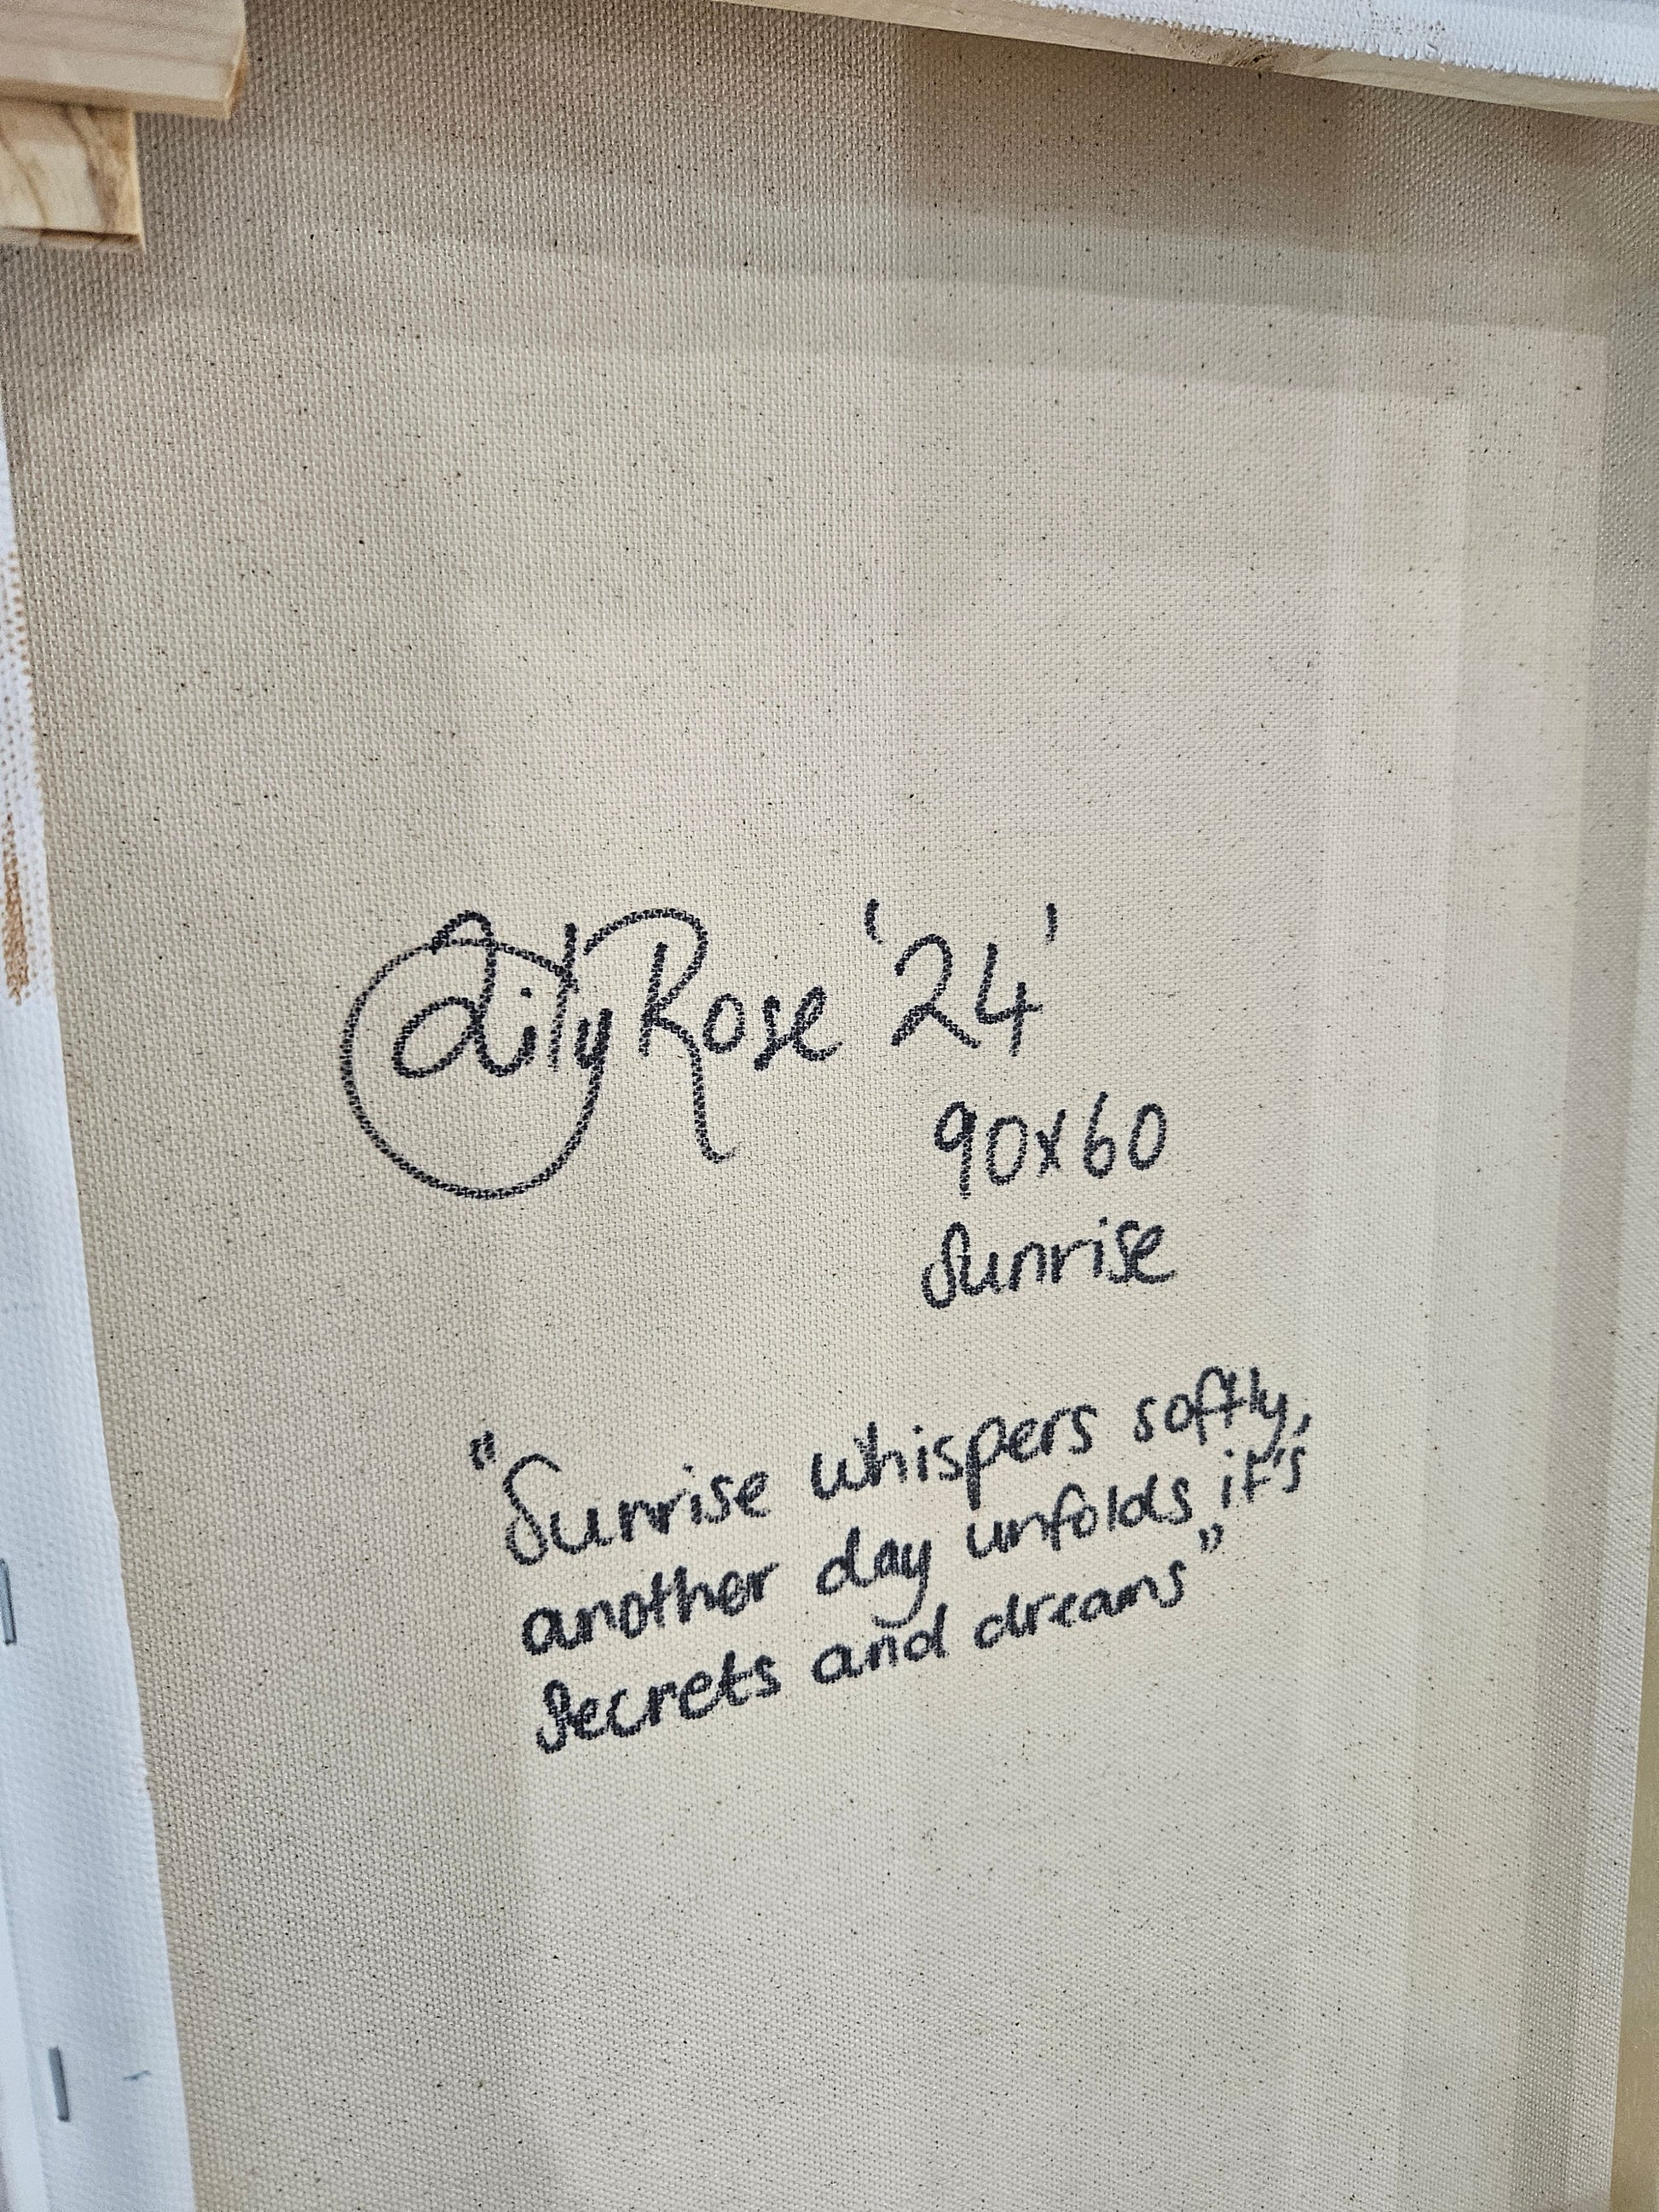 Lily Rose '24'
90x60
Sunrise
"Sunrise whispers softly,
another day unfolds it's
Secrets and dreams"